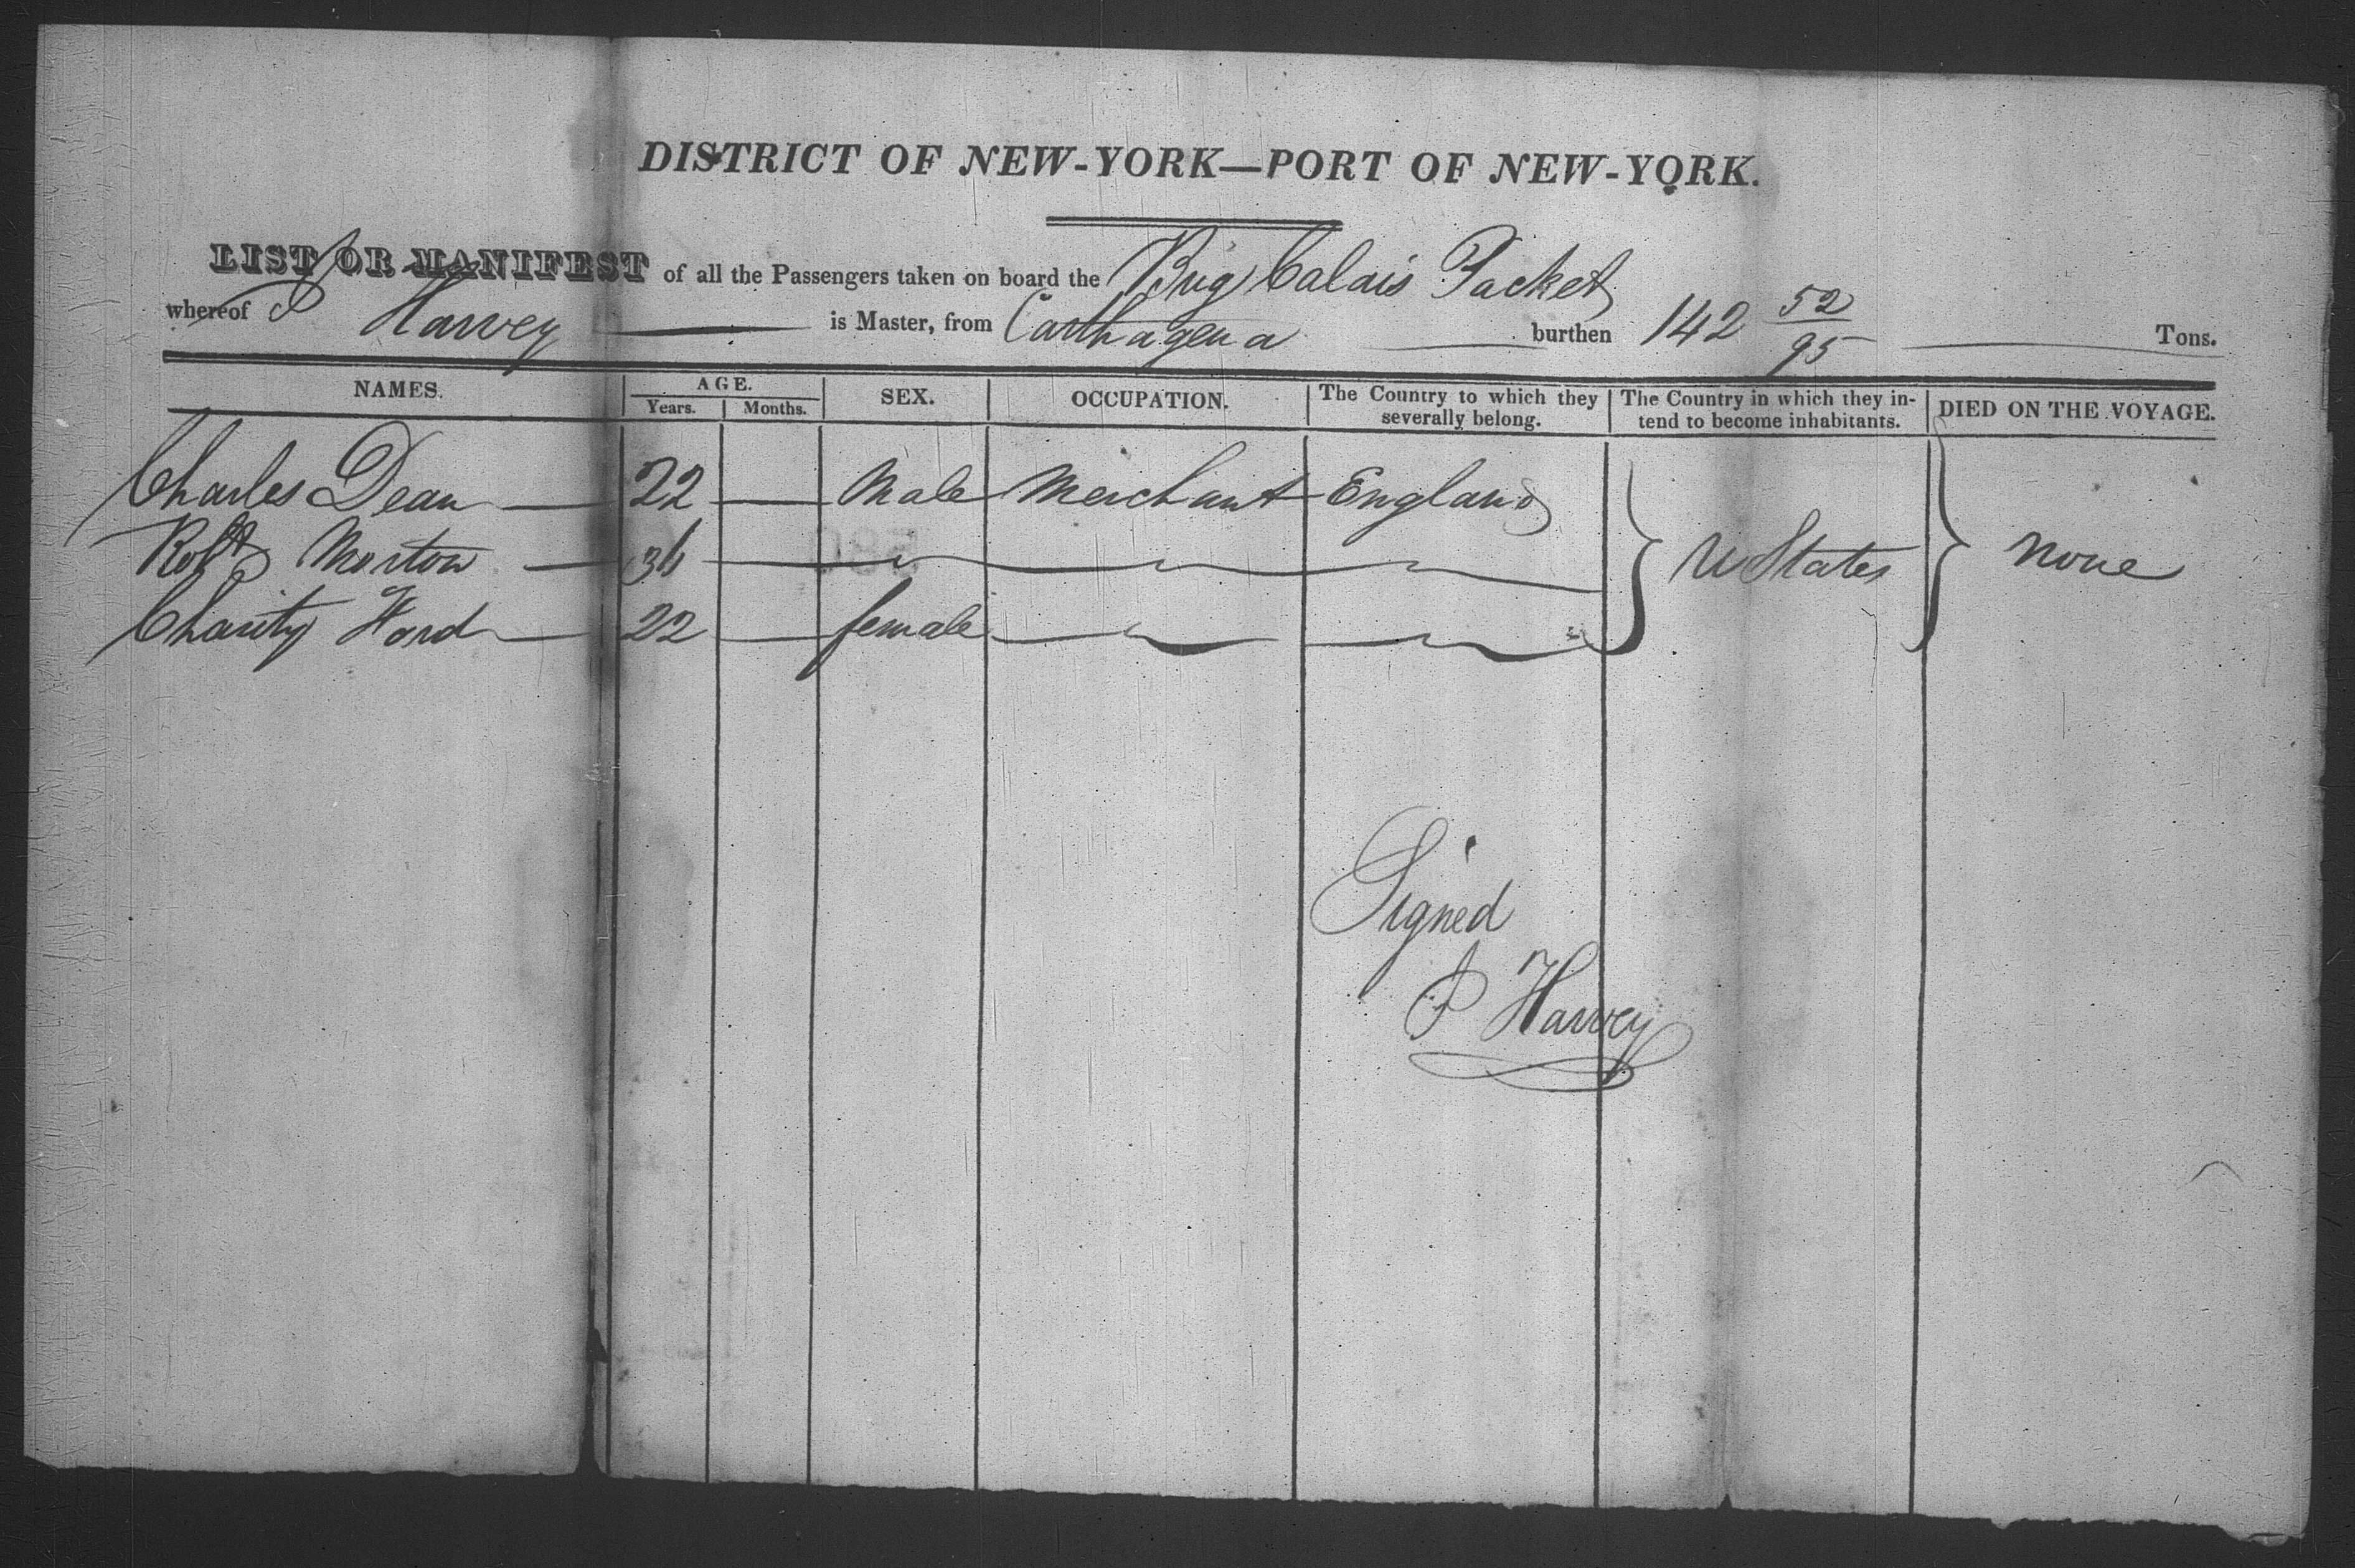 DISTRICT OF NEW-YORK—PORT OF NEW-YORK.
LIST OR MANIFEST of all the Passengers taken on board the Brig Calais Packet
whereof P Harvey is Master, from Carthagena burthen 142 52/95 Tons.
NAMES. AGE. Years. Months. SEX. OCCUPATION. The Country to which they severally belong. The Country in which they intend to become inhabitants. DIED ON THE VOYAGE.
Charles Dean 22 Male Merchant England
Robt Morton 36 U States None
Charity Ford 22 female
Signed
P Harvey